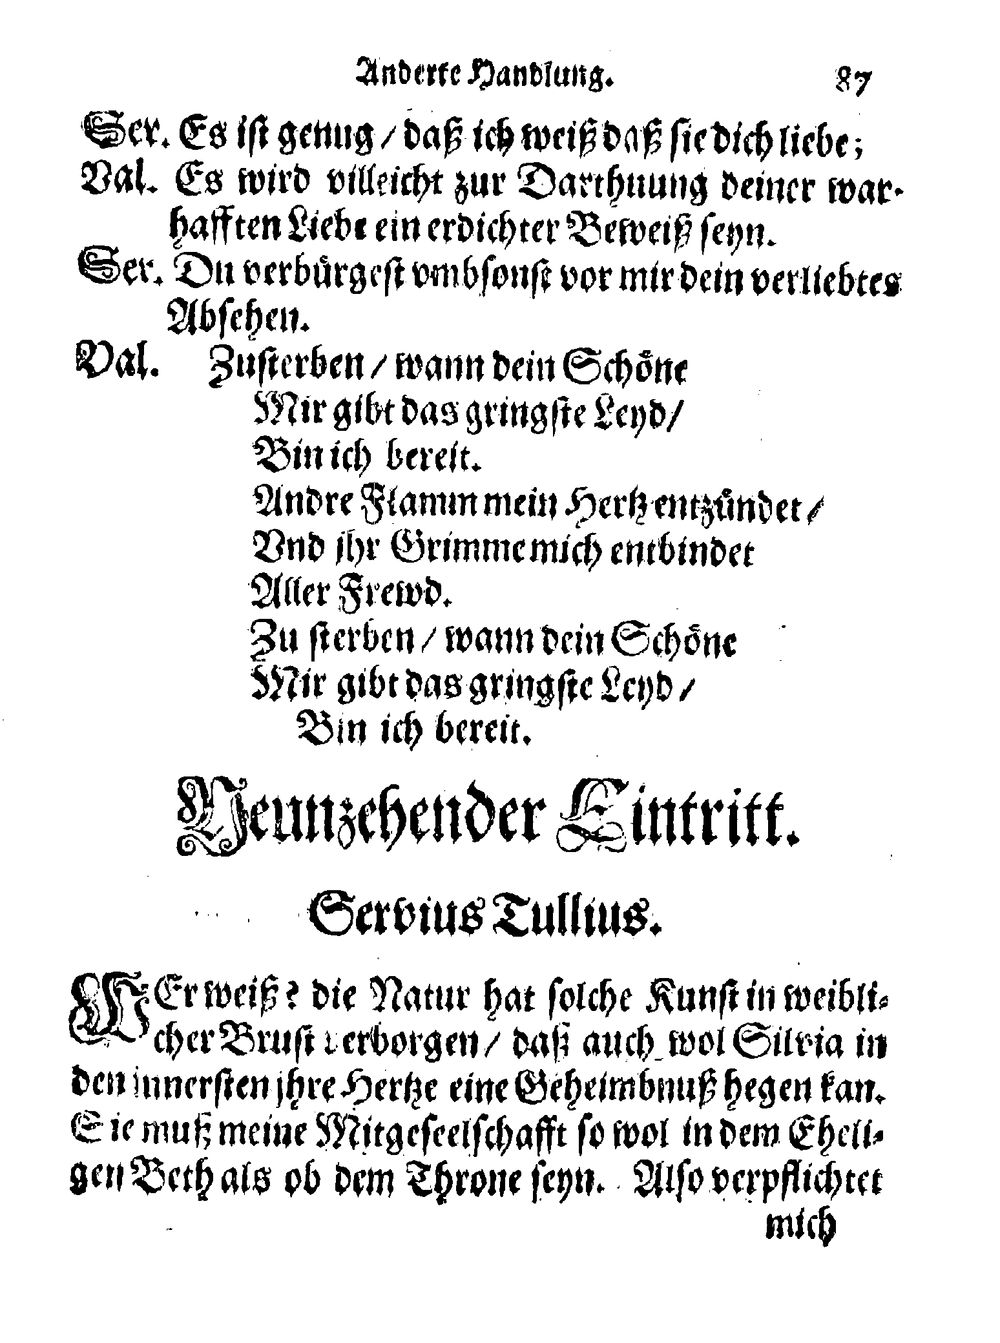 Anderte Handlung. 87
Ser. Es ist genug / daß ich weiß daß sie dich liebe;
Val. Es wird villeicht zur Darthuung deiner war-
hafften Liebe ein erdichter Beweiß seyn.
Ser. Du verbürgest vmbsonst vor mir dein verliebtes
Absehen.
Val. Zusterben / wann dein Schöne
Mir gibt das gringste Leyd /
Bin ich bereit.
Andre Flamm mein Hertz entzündet /
Vnd jhr Grimme mich entbindet
Aller Frewd.
Zu sterben / wann dein Schöne
Mir gibt das gringste Leyd /
Bin ich bereit.
Neunzehender Eintritt.
Servius Tullius.
WEr weiß? die Natur hat solche Kunst in weibli-
cher Brust verborgen / daß auch wol Silvia in
den innersten jhre Hertze eine Geheimbnuß hegen kan.
Sie muß meine Mitgeseelschafft so wol in dem Eheli-
gen Beth als ob dem Throne seyn. Also verpflichtet
mich